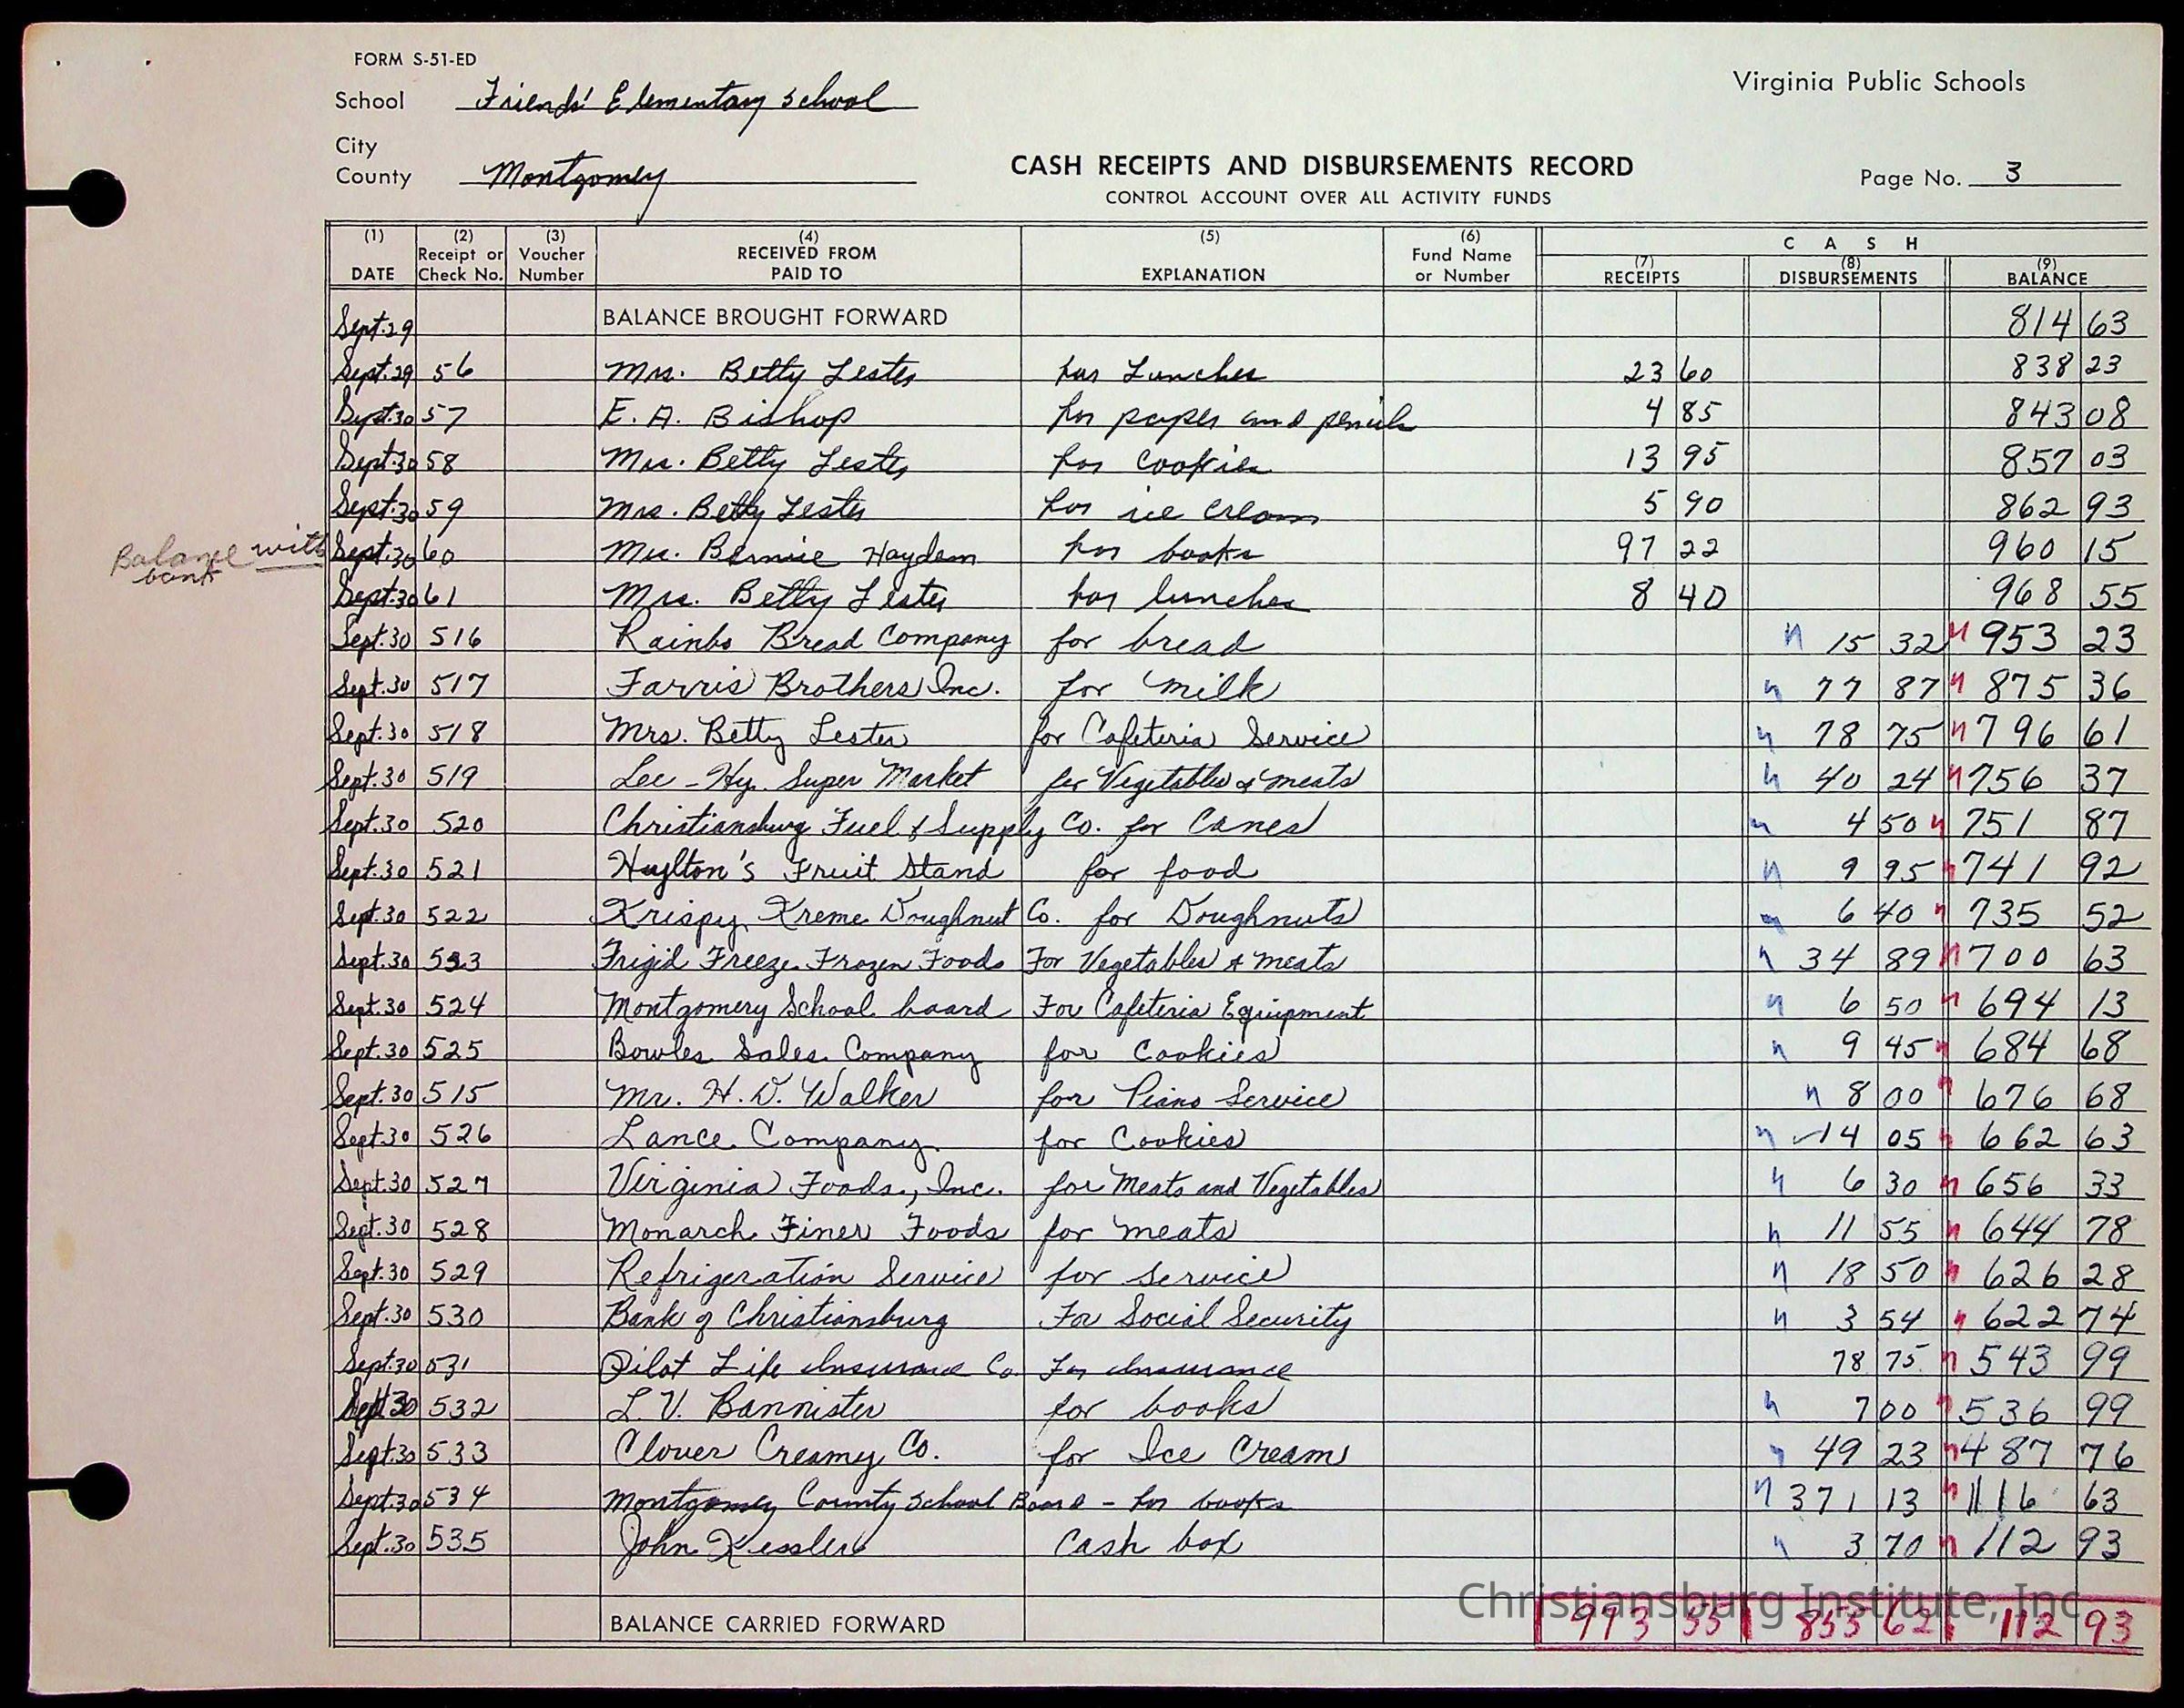 FORM S-51-ED
School Friends' Elementary School
Virginia Public Schools
City
County Montgomery
CASH RECEIPTS AND DISBURSEMENTS RECORD
CONTROL ACCOUNT OVER ALL ACTIVITY FUNDS
Page No. 3
(1) DATE (2) Receipt or Check No. (3) Voucher Number (4) RECEIVED FROM PAID TO (5) EXPLANATION (6) Fund Name or Number CASH (7) RECEIPTS (8) DISBURSEMENTS (9) BALANCE
Sept. 29 BALANCE BROUGHT FORWARD 814 63
Sept. 29 56 Mrs. Betty Lester for Lunches 23 60 838 23
Sept. 30 57 E. A. Bishop for paper and pencils 4 85 843 08
Sept. 30 58 Mrs. Betty Lester for Cookies 13 95 857 03
Sept. 30 59 Mrs. Betty Lester for ice cream 5 90 862 93
Balance with bank
Sept. 30 60 Mrs. Bernice Haydem for books 97 22 960 15
Sept. 30 61 Mrs. Betty Lester for lunches 8 40 968 55
Sept. 30 516 Rainbo Bread Company for bread 15 32 953 23
Sept. 30 517 Farris Brothers Inc. for milk 77 87 875 36
Sept. 30 518 Mrs. Betty Lester for Cafeteria Service 78 75 796 61
Sept. 30 519 Lee-Hy. Super Market for Vegetables & meats 40 24 756 37
Sept. 30 520 Christiansburg Fuel & Supply Co. for Canes 4 50 751 87
Sept. 30 521 Huylton's Fruit Stand for food 9 95 741 92
Sept. 30 522 Krispy Kreme Doughnut Co. for Doughnuts 6 40 735 52
Sept. 30 523 Frigid Freeze Frozen Foods For Vegetables & meats 34 89 700 63
Sept. 30 524 Montgomery School board For Cafeteria Equipment 6 50 694 13
Sept. 30 525 Bowles Sales Company for Cookies 9 45 684 68
Sept. 30 515 Mr. H. D. Walker for Piano Service 8 00 676 68
Sept. 30 526 Lance Company for Cookies 14 05 662 63
Sept. 30 527 Virginia Foods, Inc. for Meats and Vegetables 6 30 656 33
Sept. 30 528 Monarch Finer Foods for meats 11 55 644 78
Sept. 30 529 Refrigeration Service for service 18 50 626 28
Sept. 30 530 Bank of Christiansburg For Social Security 3 54 622 74
Sept. 30 531 Pilot Life Insurance Co. For Insurance 78 75 543 99
Sept 30 532 L. V. Bannister for books 7 00 536 99
Sept. 30 533 Clover Creamy Co. for Ice Cream 49 23 487 76
Sept. 30 534 Montgomery County School Board - for books 371 13 116 63
Sept. 30 535 John Kessler Cash box 3 70 112 93
Christiansburg Institute, Inc.
BALANCE CARRIED FORWARD 55 855 62 112 93